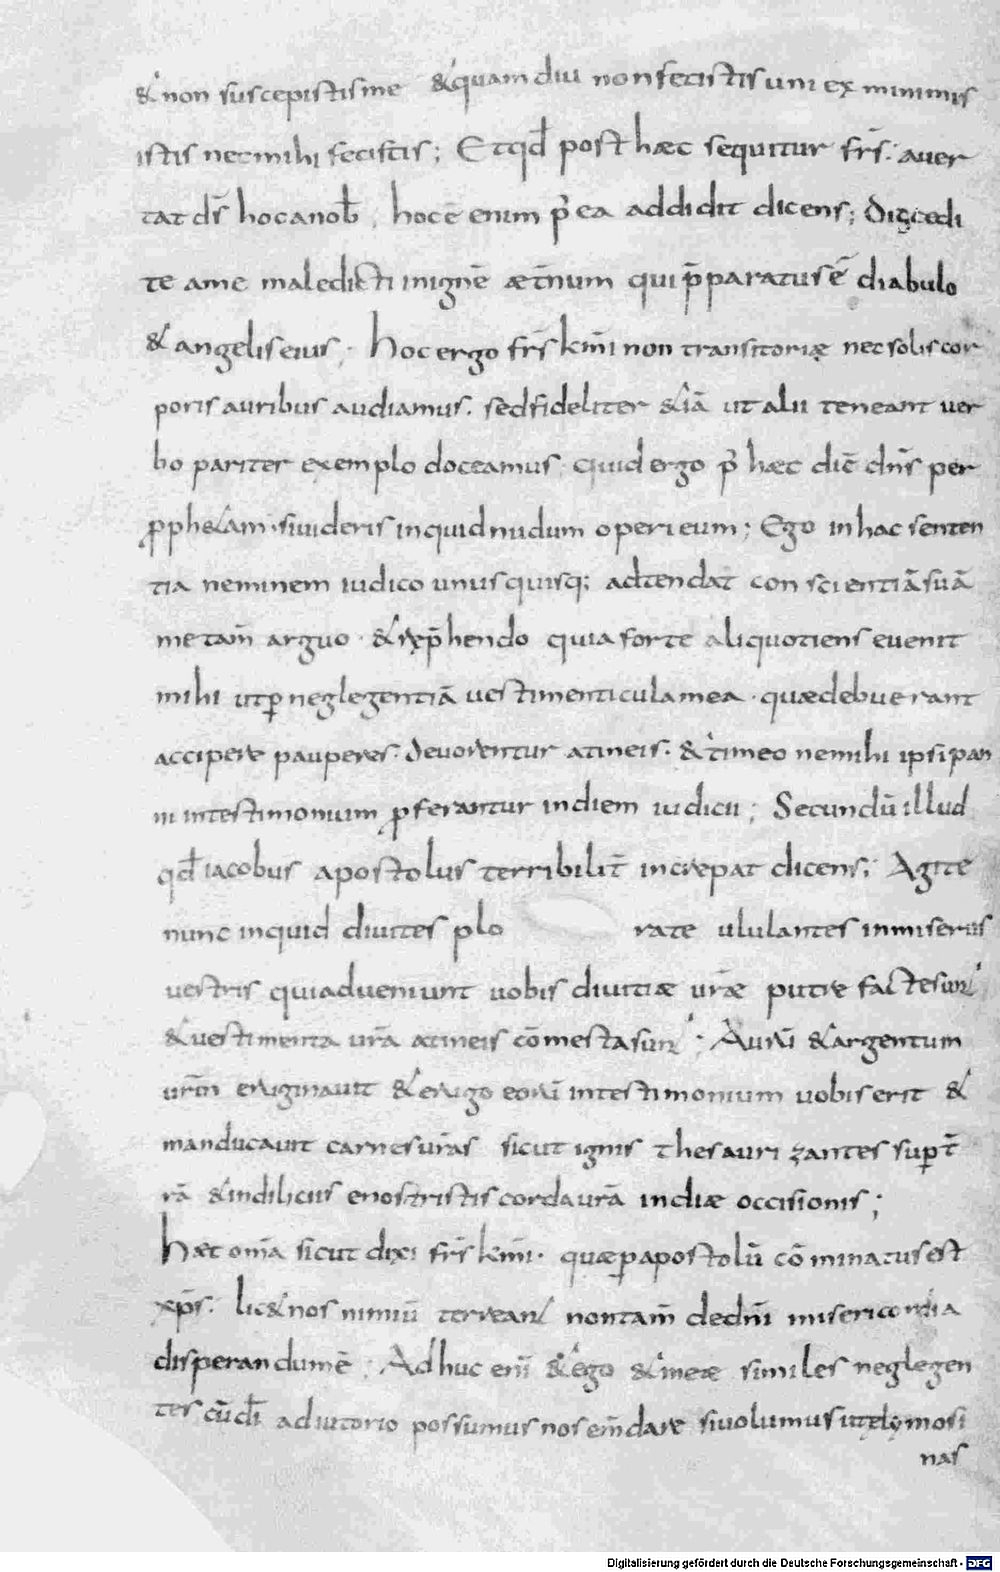 & non suscepistis me &quam diu non fecistis uni ex minimis
istis nec mihi fecistis; Et qđ post hæc sequitur frs̄. aver
tat ds̄ hoc a nob̄. hoc ē enim p̄ ea addidit dicens; Discedi
te a me maledicti in ignē æt̄num qui p̄paratus ē diabulo
& angelis eius. Hoc ergo frs̄ km̄i non transitoriæ nec solis cor
poris auribus audiamus. sed fideliter &iā ut alii teneant ver
bo pariter exemplo doceamus. quid ergo p̄ hæc dic̄ dn̄s per
p̄ph&am. si uideris inquid nudum operi eum; Ego in hac senten
tia neminem iudico unusquisq; adtendat conscientiā suā
me tam̄ arguo. & rep̄hendo quia forte aliquotiens evenit
mihi ut p̱ neglegentiā vestimenticula mea. quæ debuerant
accipere pauperes. devorentur a tineis. & timeo ne mihi ipsi pan
ni in testimonium proferantur in diem iudicii; Secundū illud
qđ iacobus apostolus terribilit̄ increpat dicens; Agite
nunc inquid divites plo rate ululantes in miseriis
vestris qui adveniunt vobis divitiæ vr̄æ putre factę sunt
& vestimenta vr̄a a tineis cōmesta sunt; Aurū & argentum
vrm̄ eruginavit & erugo eorū in testimonium vobis erit &
manducavit carnes vr̄as sicut ignis thesaurizantes sup̱ t̄
rā & in diliciis enostristis corda vr̄a in diæ occisionis;
Hæc om̄a sicut dixi frs̄ km̄i. quæ p̱ apostolū cōminatus est
xp̄s. lic& nos nimiū terreant non tam̄ dedm̄i misericordia
disperandum ē. Adhuc eni & ego & meæ similes neglegen
tes cū dī adiutorio possumus nos em̄dare si volumus ut elymosi
nas
Digitalisierung gefördert durch die Deutsche Forschungsgemeinschaft - DFG